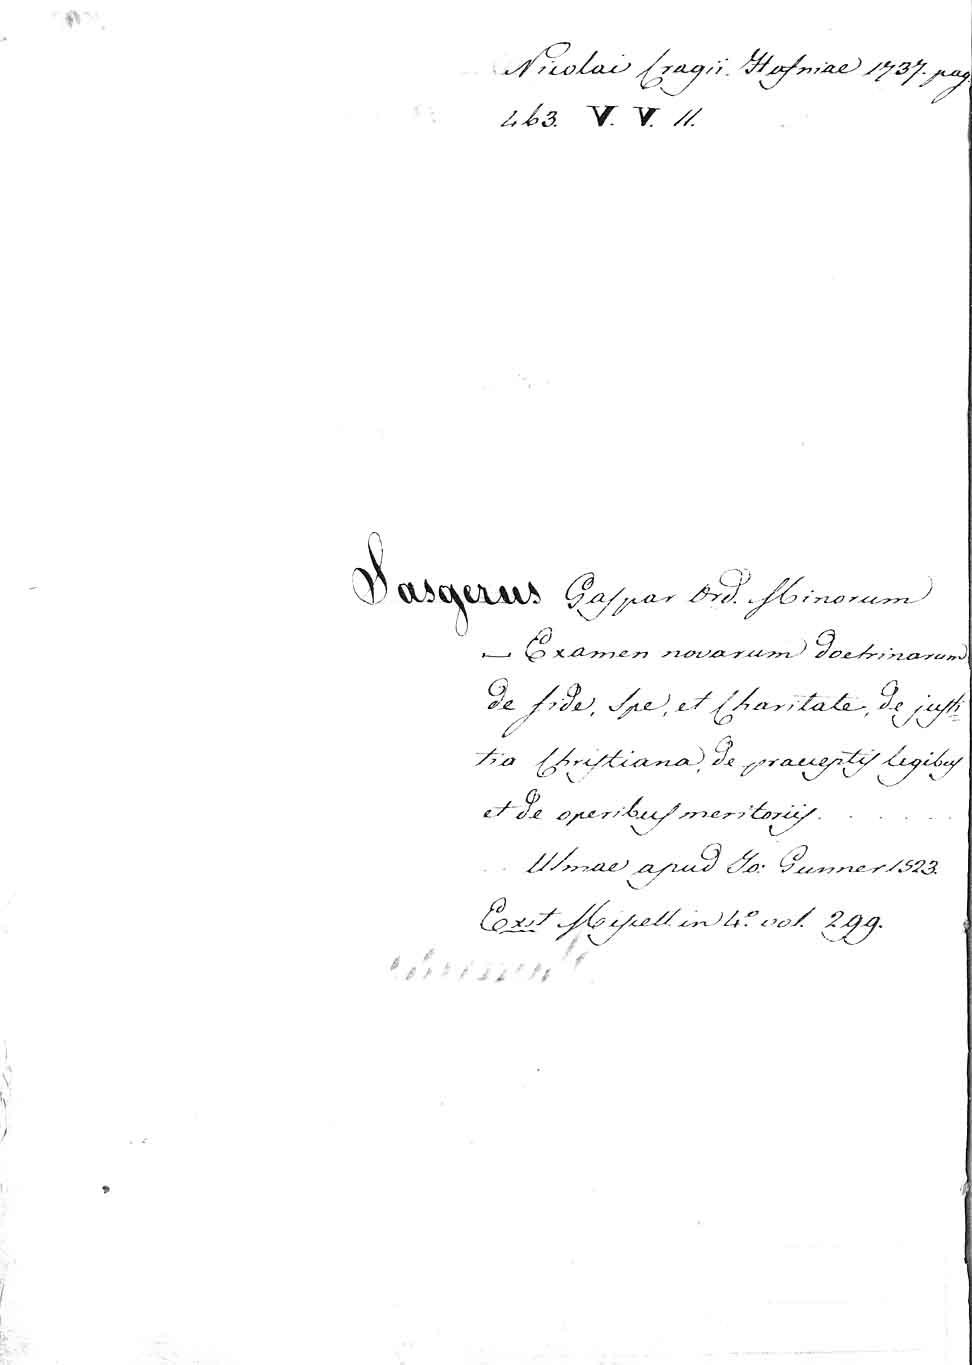 Nicolai Cragii. Hafniae 1737. pag.
463. V. V. 11.
Sasgerus Gaspar Ord. Minorum
— Examen novarum doctrinarum
de fide, spe, et Charitate, de justi=
tia Christiana, de praeceptis legibus
et de operibus meritoriis. . . . . . .
. . Ulmae apud Jo: Gunner 1523.
Exst Miscell. in 4.º vol. 299.